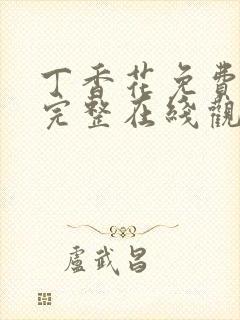 丁香花免費
完整在綫觀
盧武昌